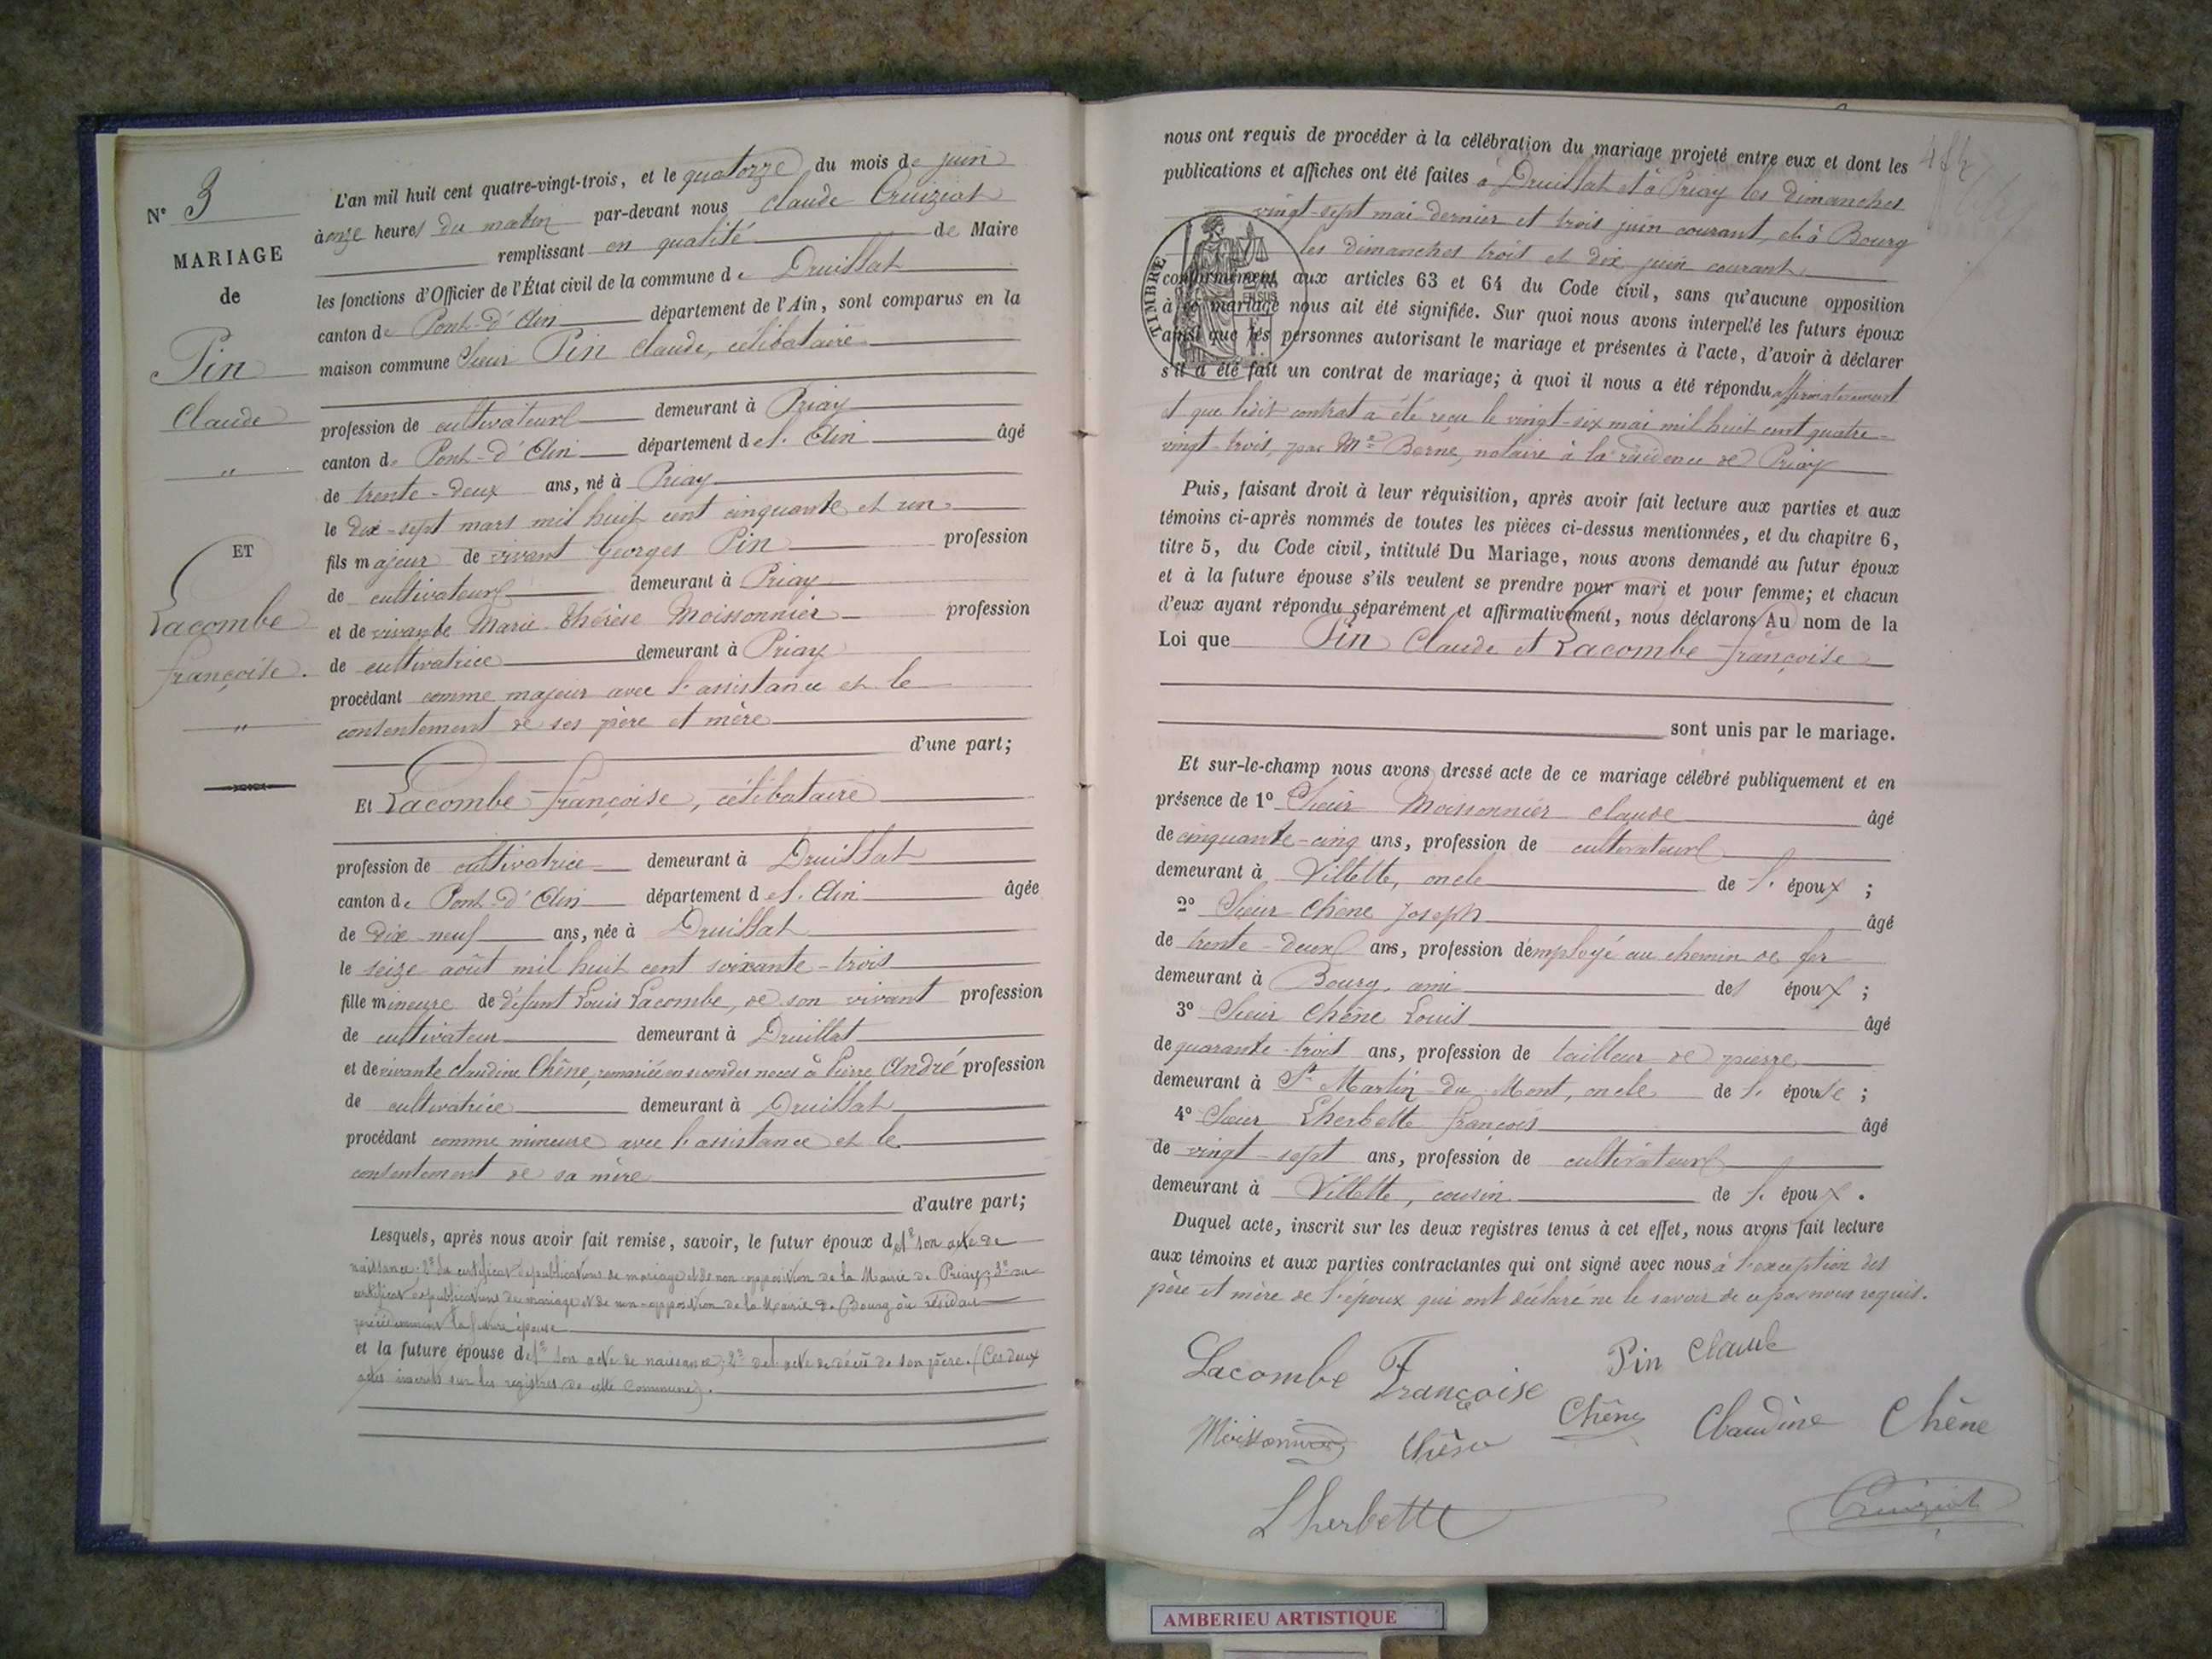 N° 3
MARIAGE
de
Pin
Claude
"
ET
Lacombe
françoise.
"
L'an mil huit cent quatre-vingt-trois, et le quatorze du mois de juin
à onze heures du matin par-devant nous Claude Cruiziat
remplissant en qualité de Maire
les fonctions d'Officier de l'État civil de la commune de Druillat
canton de Pont-d'Ain département de l'Ain, sont comparus en la
maison commune Sieur Pin Claude, célibataire
profession de cultivateur demeurant à Priay
canton de Pont-d'Ain département de l'Ain âgé
de trente-deux ans, né à Priay
le dix-sept mars mil huit cent cinquante et un
fils majeur de vivant Georges Pin profession
de cultivateur demeurant à Priay
et de vivante Marie Thérèse Moissonnier profession
de cultivatrice demeurant à Priay
procédant comme majeur avec l'assistance et le
consentement de ses père et mère
d'une part;
Et Lacombe françoise, célibataire
profession de cultivatrice demeurant à Druillat
canton de Pont-d'Ain département de l'Ain âgée
de dix-neuf ans, née à Druillat
le seize août mil huit cent soixante-trois
fille mineure de défunt Louis Lacombe, de son vivant profession
de cultivateur demeurant à Druillat
et de vivante Claudine Chêne, remariée en secondes noces à Pierre André profession
de cultivatrice demeurant à Druillat
procédant comme mineure avec l'assistance et le
consentement de sa mère
d'autre part;
Lesquels, après nous avoir fait remise, savoir, le futur époux de 1° son acte de
naissance; 2° du certificat de publications de mariage et de non opposition de la Mairie de Priay; 3° du
certificat de publications de mariage et de non-opposition de la Mairie de Bourg où résidait
précédemment la future épouse
et la future épouse de 1° son acte de naissance; 2° de l'acte de décès de son père. (Ces deux
actes inscrits sur les registres de cette Commune).
nous ont requis de procéder à la célébration du mariage projeté entre eux et dont les
publications et affiches ont été faites à Druillat et à Priay les dimanches
vingt-sept mai dernier et trois juin courant, et à Bourg
les dimanches trois et dix juin courant
TIMBRE
conformément aux articles 63 et 64 du Code civil, sans qu'aucune opposition
à ce mariage nous ait été signifiée. Sur quoi nous avons interpellé les futurs époux
ainsi que les personnes autorisant le mariage et présentes à l'acte, d'avoir à déclarer
s'il a été fait un contrat de mariage; à quoi il nous a été répondu affirmativement
et que ledit contrat a été reçu le vingt-six mai mil huit cent quatre-
vingt-trois, par Me Berne, notaire à la résidence de Priay
Puis, faisant droit à leur réquisition, après avoir fait lecture aux parties et aux
témoins ci-après nommés de toutes les pièces ci-dessus mentionnées, et du chapitre 6,
titre 5, du Code civil, intitulé Du Mariage, nous avons demandé au futur époux
et à la future épouse s'ils veulent se prendre pour mari et pour femme; et chacun
d'eux ayant répondu séparément et affirmativement, nous déclarons Au nom de la
Loi que Pin Claude et Lacombe françoise
sont unis par le mariage.
Et sur-le-champ nous avons dressé acte de ce mariage célébré publiquement et en
présence de 1° Sieur Moissonnier Claude âgé
de cinquante-cinq ans, profession de cultivateur
demeurant à Villette, oncle de l'époux ;
2° Sieur Chêne Joseph âgé
de trente-deux ans, profession d'employé au chemin de fer
demeurant à Bourg, ami des époux ;
3° Sieur Chêne Louis âgé
de quarante-trois ans, profession de tailleur de pierre
demeurant à St Martin-du-Mont, oncle de l'épouse ;
4° Sieur Lherbette françois âgé
de vingt-sept ans, profession de cultivateur
demeurant à Villette, cousin de l'époux.
Duquel acte, inscrit sur les deux registres tenus à cet effet, nous avons fait lecture
aux témoins et aux parties contractantes qui ont signé avec nous à l'exception des
père et mère de l'époux qui ont déclaré ne le savoir de ce par nous requis.
Lacombe Françoise Pin Claude
Moissonnier Chêne Chêne Claudine Chêne
Lherbette Cruiziat
AMBERIEU ARTISTIQUE